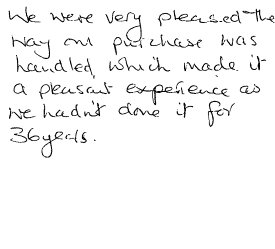 We were very pleased the
way our purchase was
handled, which made it
a pleasant experience as
we hadn't done it for
36 years.